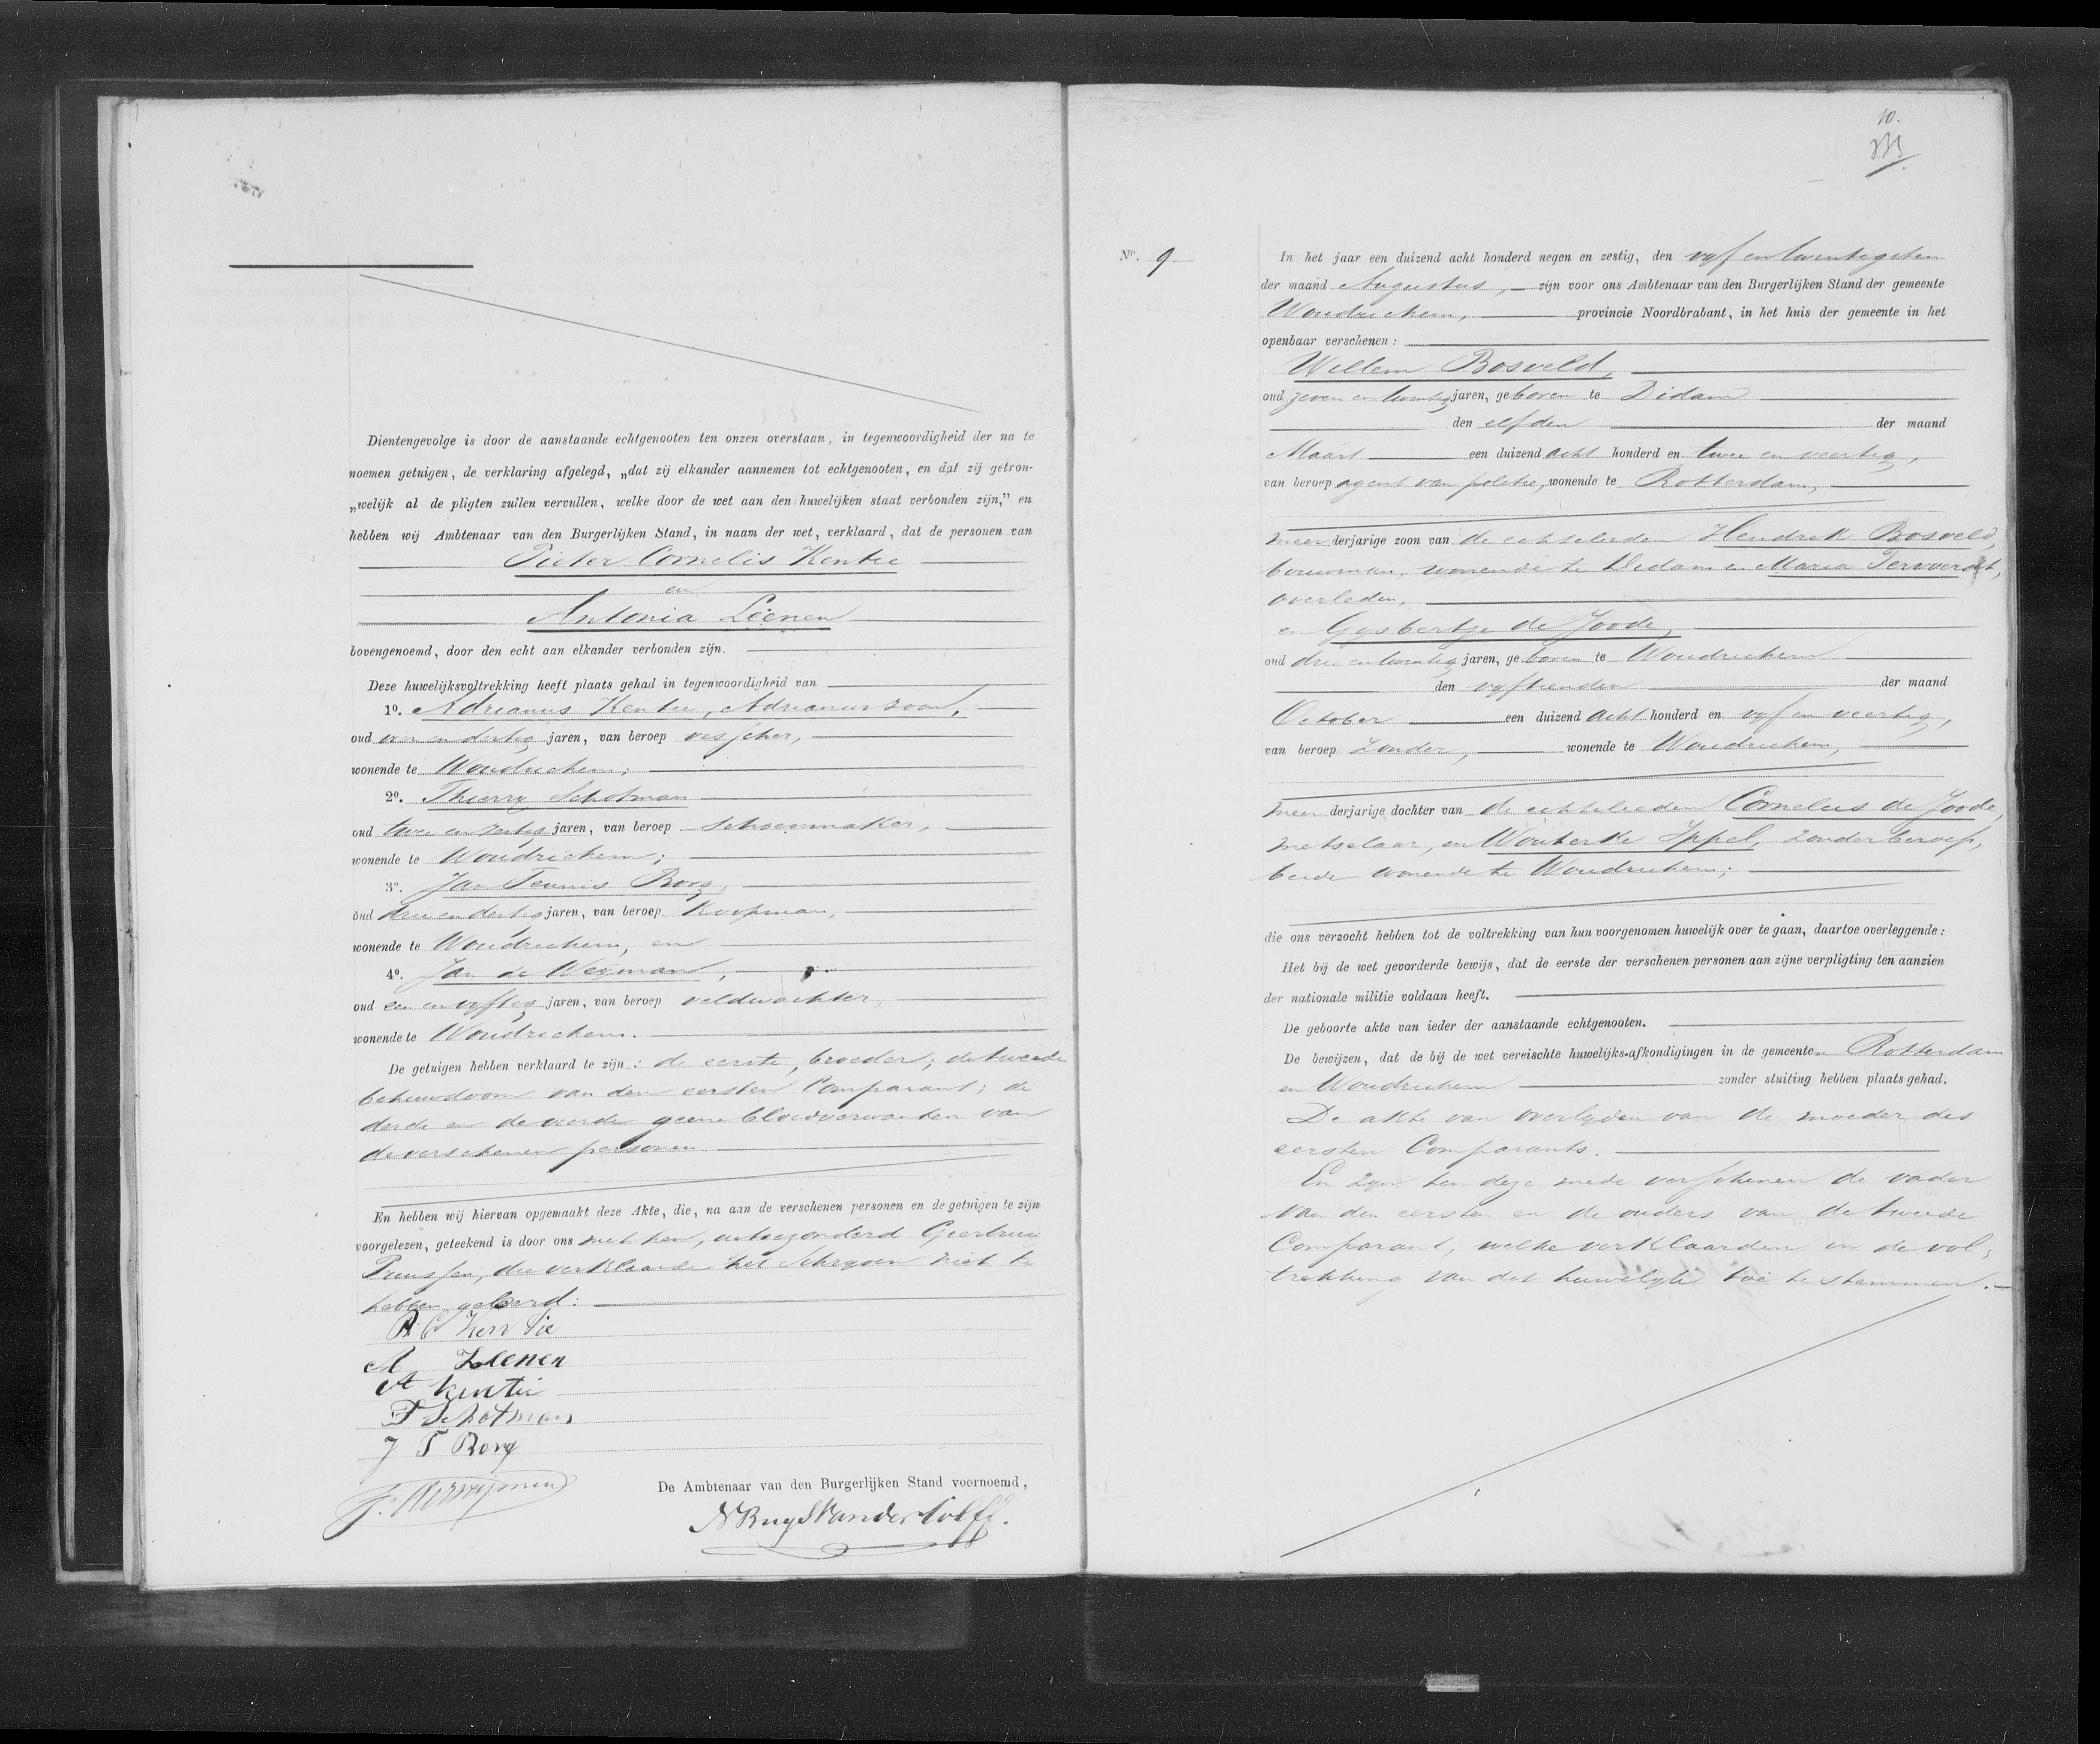 Dientengevolge is door de aanstaande echtgenooten ten onzen overstaan, in tegenwoordigheid der na te
noemen getuigen, de verklaring afgelegd, „dat zij elkander aannemen tot echtgenooten, en dat zij getrou-
„welijk al de pligten zullen vervullen, welke door de wet aan den huwelijken staat verbonden zijn,” en
hebben wij Ambtenaar van den Burgerlijken Stand, in naam der wet, verklaard, dat de personen van
Pieter Cornelis Kentie
en
Antonia Leenen
bovengenoemd, door den echt aan elkander verbonden zijn.
Deze huwelijksvoltrekking heeft plaats gehad in tegenwoordigheid van
1º. Adrianus Kentie, Adrianuszoon,
oud vier en dertig jaren, van beroep visscher,
wonende te Woudrichem;
2º. Thierry Schotman
oud twee en zestig jaren, van beroep schoenmaker,
wonende te Woudrichem;
3º. Jan Teunis Borg,
oud drie en dertig jaren, van beroep koopman,
wonende te Woudrichem, en
4º. Jan de Weijman,
oud een en vyftig jaren, van beroep veldwachter,
wonende te Woudrichem.
De getuigen hebben verklaard te zijn: de eerste, broeder; de tweede
behuwdoom van den eersten Comparant; de
derde en de vierde geene bloedverwanten van
de verschenen personen.
En hebben wij hiervan opgemaakt deze Akte, die, na aan de verschenen personen en de getuigen te zijn
voorgelezen, geteekend is door ons met hen, uitgezonderd Geertrui
die verklaarde het schryven niet te
hebben geleerd.
P C Kentie
A Leenen
A Kentie
T Schotman
J T Borg
De Ambtenaar van den Burgerlijken Stand voornoemd,
10.
Nº. 9
In het jaar een duizend acht honderd negen en zestig, den vyf en twintigsten
der maand Augustus, zijn voor ons Ambtenaar van den Burgerlijken Stand der gemeente
Woudrichem, provincie Noordbrabant, in het huis der gemeente in het
openbaar verschenen:
Willem Bosveld,
oud zeven en twintig jaren, geboren te Didam
den elfden der maand
Maart een duizend acht honderd en twee en veertig,
van beroep agent van politie, wonende te Rotterdam,
meerderjarige zoon van de echtelieden Hendrik Bosveld,
bouwman, wonende te Didam en Maria Tervverdt,
overleden,
en Gysbertje de Joode,
oud drie en twintig jaren, geboren te Woudrichem
den vyftienden der maand
October een duizend acht honderd en vyf en veertig,
van beroep zonder, wonende te Woudrichem,
meerderjarige dochter van de echtelieden Cornelis de Joode,
metselaar, en Wouterke Ippel, zonder beroep,
beide wonende te Woudrichem;
die ons verzocht hebben tot de voltrekking van hun voorgenomen huwelijk over te gaan, daartoe overleggende:
Het bij de wet gevorderde bewijs, dat de eerste der verschenen personen aan zijne verpligting ten aanzien
der nationale militie voldaan heeft.
De geboorte akte van ieder der aanstaande echtgenooten.
De bewijzen, dat de bij de wet vereischte huwelijks-afkondigingen in de gemeenten Rotterdam
en Woudrichem zonder stuiting hebben plaats gehad.
De akte van overlyden van de moeder des
eersten Comparants.
En zyn ten deze mede verschenen de vader
van den eersten en de ouders van de tweede
Comparant, welke verklaarden in de vol-
trekking van dit huwelyk toe te stemmen.